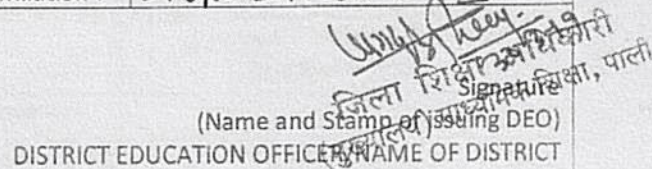 जिला शिक्षा अधिकारी
Signature
(मुख्यालय) माध्यमिक शिक्षा, पाली
(Name and Stamp of issuing DEO)
DISTRICT EDUCATION OFFICER, NAME OF DISTRICT